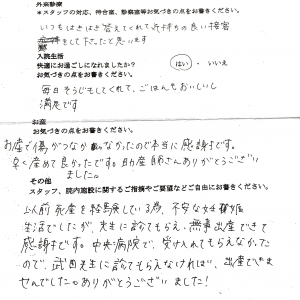 外来診療
*スタッフの対応、待合室、診察室等お気づきの点をお書きください。
いつもはきはき答えてくれて気持ちの良い接客
をして下さったと思います
入院生活
快適にお過ごしになれましたか? はい ・ いいえ
お気づきの点をお書きください。
毎日そうじもしてくれて、ごはんもおいしいし
満足です
お産
お気づきの点をお書きください。
お産で傷がつかなかったので本当に感謝です。
早く産めて良かったです。助産師さんありがとうござい
ました。
その他
スタッフ、院内施設に関するご指摘やご要望などご自由にお書きください。
以前死産を経験している為、不安な妊娠
生活でしたが、先生に診てもらえ、無事出産できて
感謝です。中央病院で、受け入れてもらえなかった
ので、武田先生に診てもらえなければ、出産できま
せんでした。ありがとうございました!